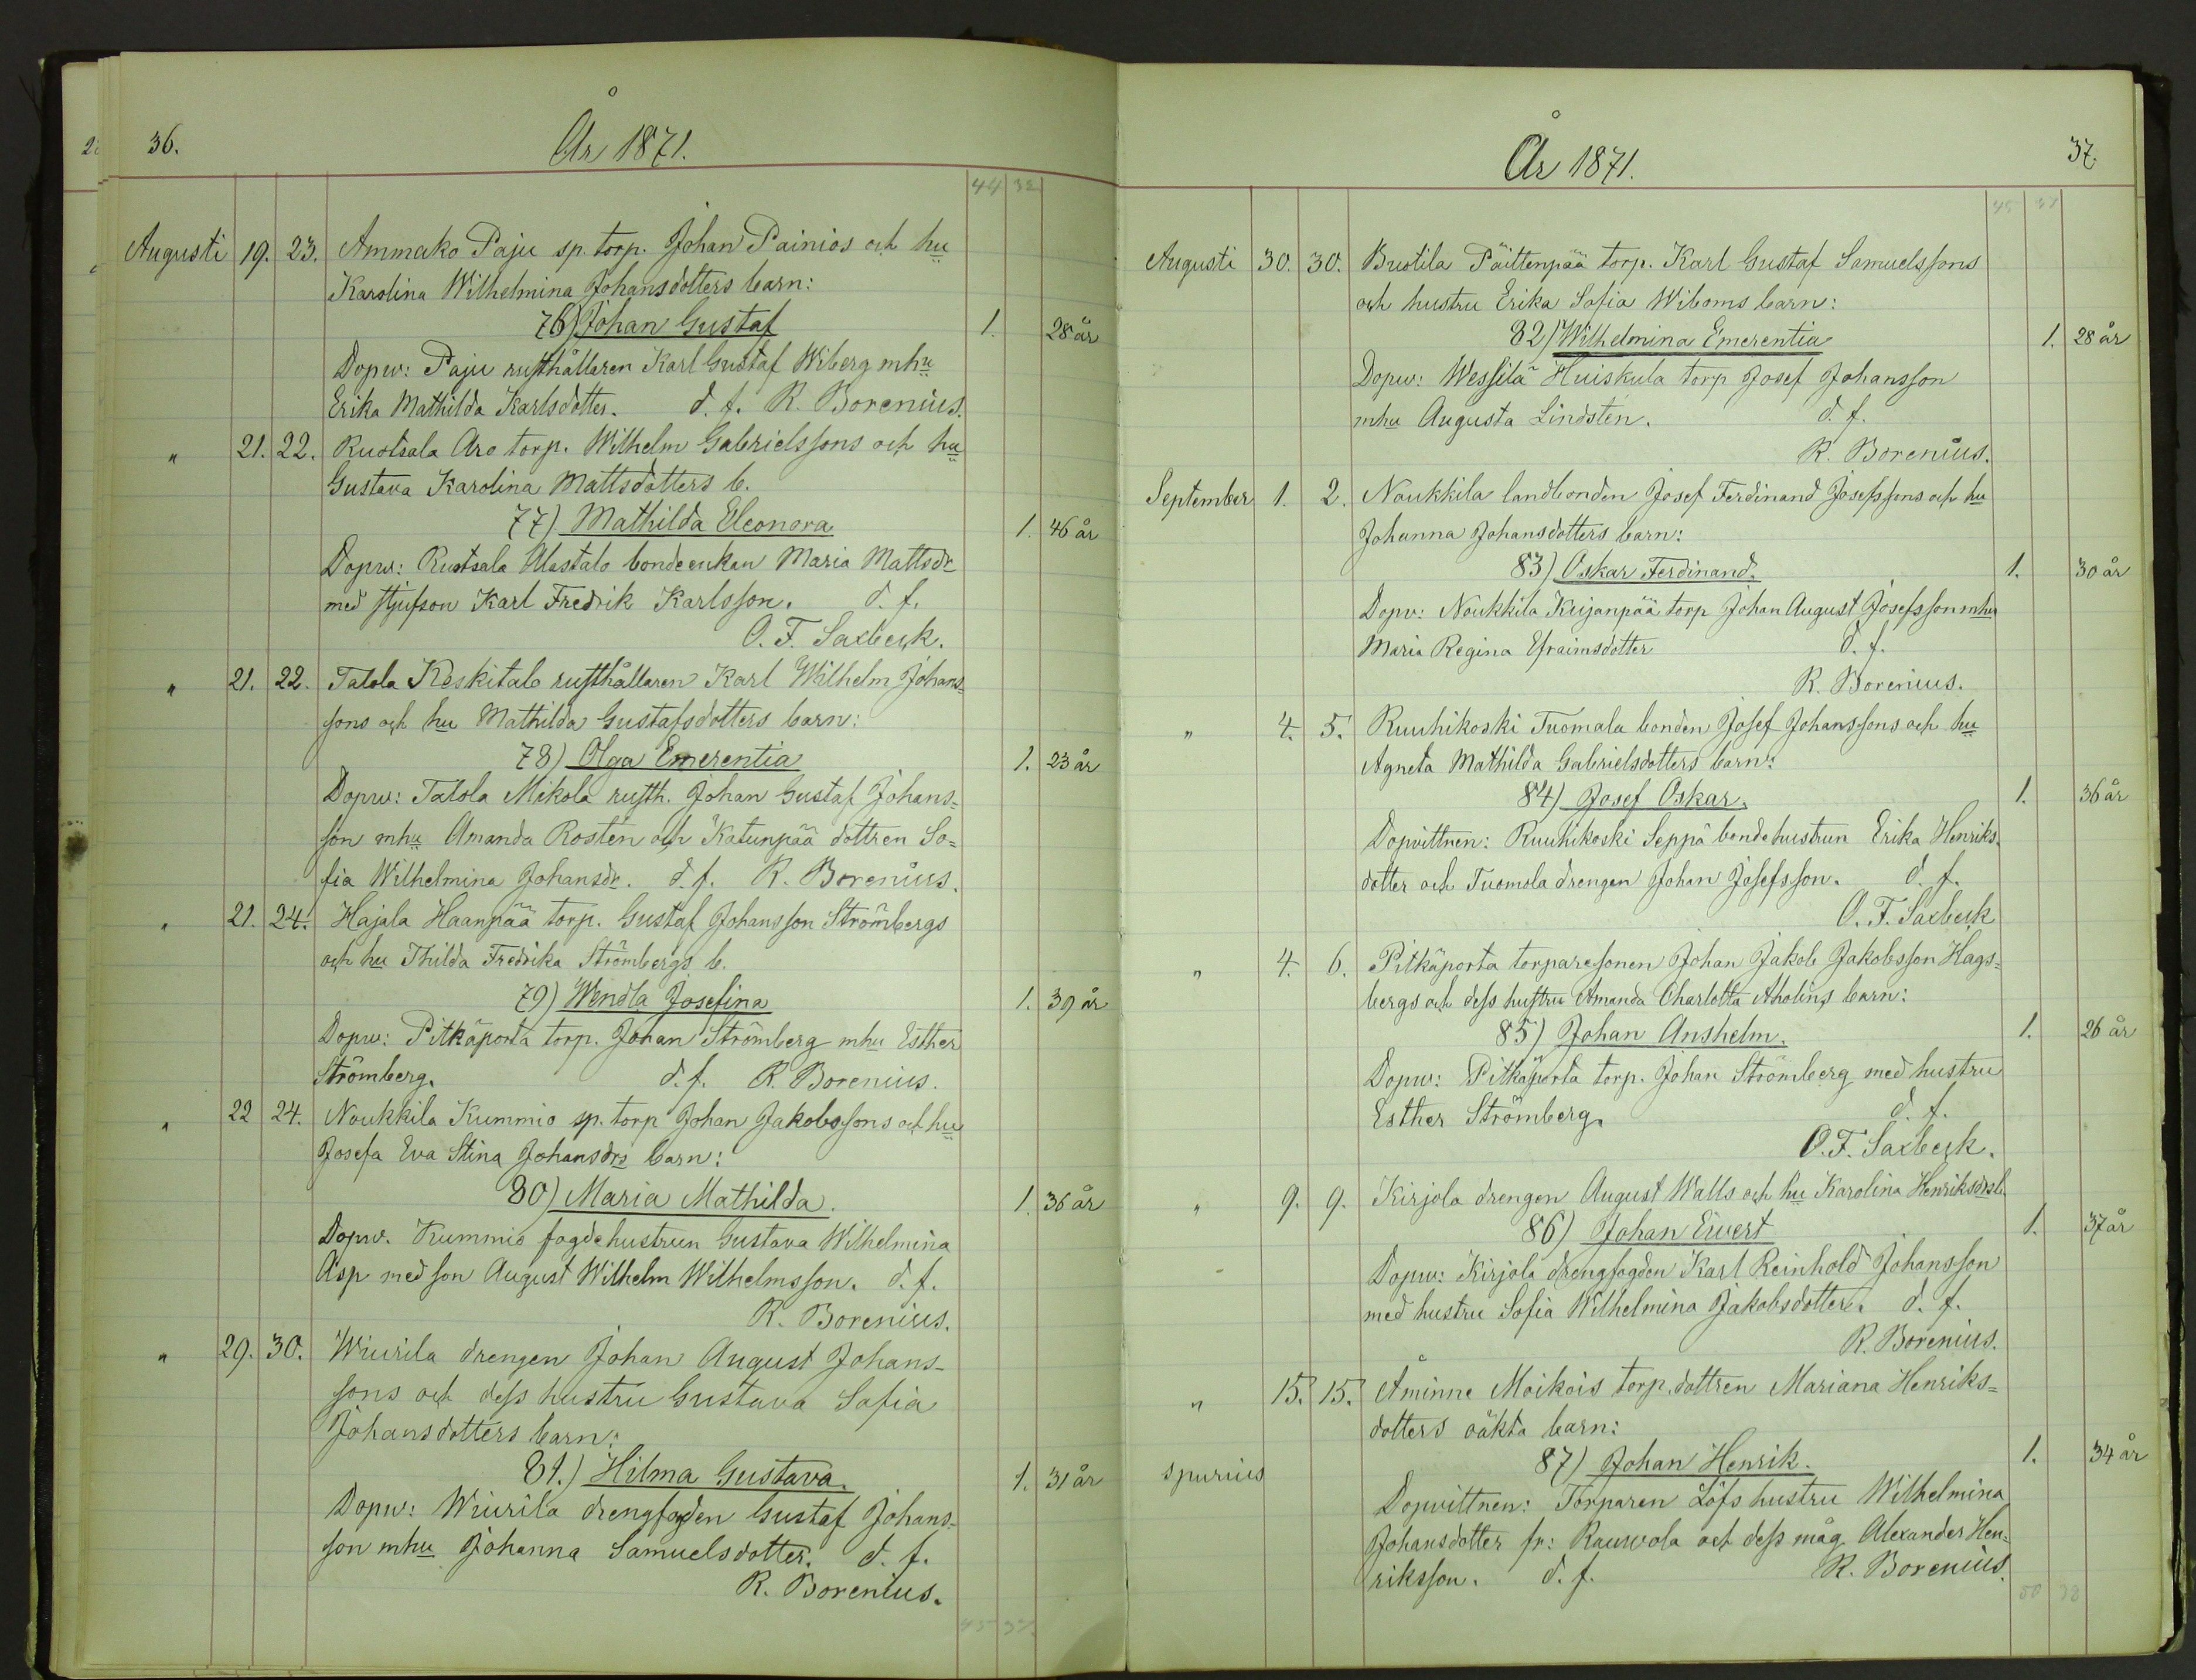 36.
År 1871.
44 32
Augusti 19. 23. Ammako Paju sp. torp. Johan Painios och hu
Karolina Wilhelmina Johansdotters barn:
76) Johan Gustaf 1. 28 år
Dopw: Paju rusthållaren Karl Gustaf Wiberg mhu
Erika Mathilda Karlsdotter. d. f. R. Borenius.
" 21. 22. Ruotsala Aro torp. Wilhelm Gabrielssons och hu
Gustava Karolina Mattsdotters b.
77) Mathilda Eleonora 1. 46 år
Dopw: Ruotsala Alastalo bondeenkan Maria Mattsdr
med stjufson Karl Fredrik Karlsson. d. f.
O. F. Saxbeck.
" 21. 22. Tatola Keskitalo rusthållaren Karl Wilhelm Johans=
sons och hu Mathilda Gustafsdotters barn:
78) Olga Emerentia 1. 23 år
Dopw: Tatola Mikola rusth. Johan Gustaf Johans=
son mhu Amanda Rostén och Katunpää dottren So=
fia Wilhelmina Johansdr. d. f. R. Borenius.
" 21. 24. Hajala Haanpää torp. Gustaf Johansson Strömbergs
och hu Thilda Fredrika Strömbergs b.
79) Wendla Josefina 1. 39 år
Dopw: Pitkäporta torp. Johan Strömberg mhu Esther
Strömberg. d. f. R. Borenius.
" 22 24. Noukkila Kummio sp. torp Johan Jakobssons och hu
Josefa Eva Stina Johansdrs barn:
80) Maria Mathilda. 1. 36 år
Dopw. Kummio fogdehustrun Gustava Wilhelmina
Asp med son August Wilhelm Wilhelmsson. d. f.
R. Borenius.
" 29. 30. Wiurila drengen Johan August Johans=
sons och dess hustru Gustava Sofia
Johansdotters barn:
81.) Hilma Gustava. 1. 31 år
Dopw: Wiurila drengfogden Gustaf Johans=
son mhu Johanna Samuelsdotter. d. f.
R. Borenius.
45 37.
År 1871.
37.
45 37
Augusti 30. 30. Buotila Päittenpää torp. Karl Gustaf Samuelssons
och hustru Erika Sofia Wiboms barn:
82) Wilhelmina Emerentia 1. 28 år
Dopw: Wessilä Huiskula torp Josef Johansson
mhu Augusta Lindstén. d. f.
R. Borenius.
September 1. 2. Noukkila landbonden Josef Ferdinand Josefssons och hu
Johanna Johansdotters barn:
83) Oskar Ferdinand. 1. 30 år
Dopw: Noukkila Kujanpää torp Johan August Josefsson mhu
Maria Regina Efraimsdotter d. f.
R. Borenius.
" 4. 5. Ruuhikoski Tuomala bonden Josef Johanssons och hu
Agneta Mathilda Gabrielsdotters barn:
84) Josef Oskar. 1. 36 år
Dopvittnen: Ruuhikoski Seppä bondehustrun Erika Henriks=
dotter och Tuomola drengen Johan Josefsson. d. f.
O. F. Saxbeck
" 4. 6. Pitkäporta torparesonen Johan Jakob Jakobsson Hags=
bergs och dess hustru Amanda Charlotta Aholins barn:
85) Johan Anshelm. 1. 26 år
Dopw: Pitkäporta torp. Johan Strömberg med hustru
Esther Strömberg. d. f.
O. F. Saxbeck.
" 9. 9. Kirjola drengen August Walls och hu Karolina Henriksdrs b.
86) Johan Eivert 1. 37 år
Dopw: Kirjola drengfogden Karl Reinhold Johansson
med hustru Sofia Wilhelmina Jakobsdotter. d. f.
R. Borenius.
" 15. 15. Åminne Moikois torp.dottren Mariana Henriks=
dotters oäkta barn:
87) Johan Henrik. 1. 34 år
spurius
Dopvittnen: Torparen Löfs hustru Wilhelmina
Johansdotter fr: Rauvola och dess måg Alexander Hen=
riksson. d. f. R. Borenius.
50 38